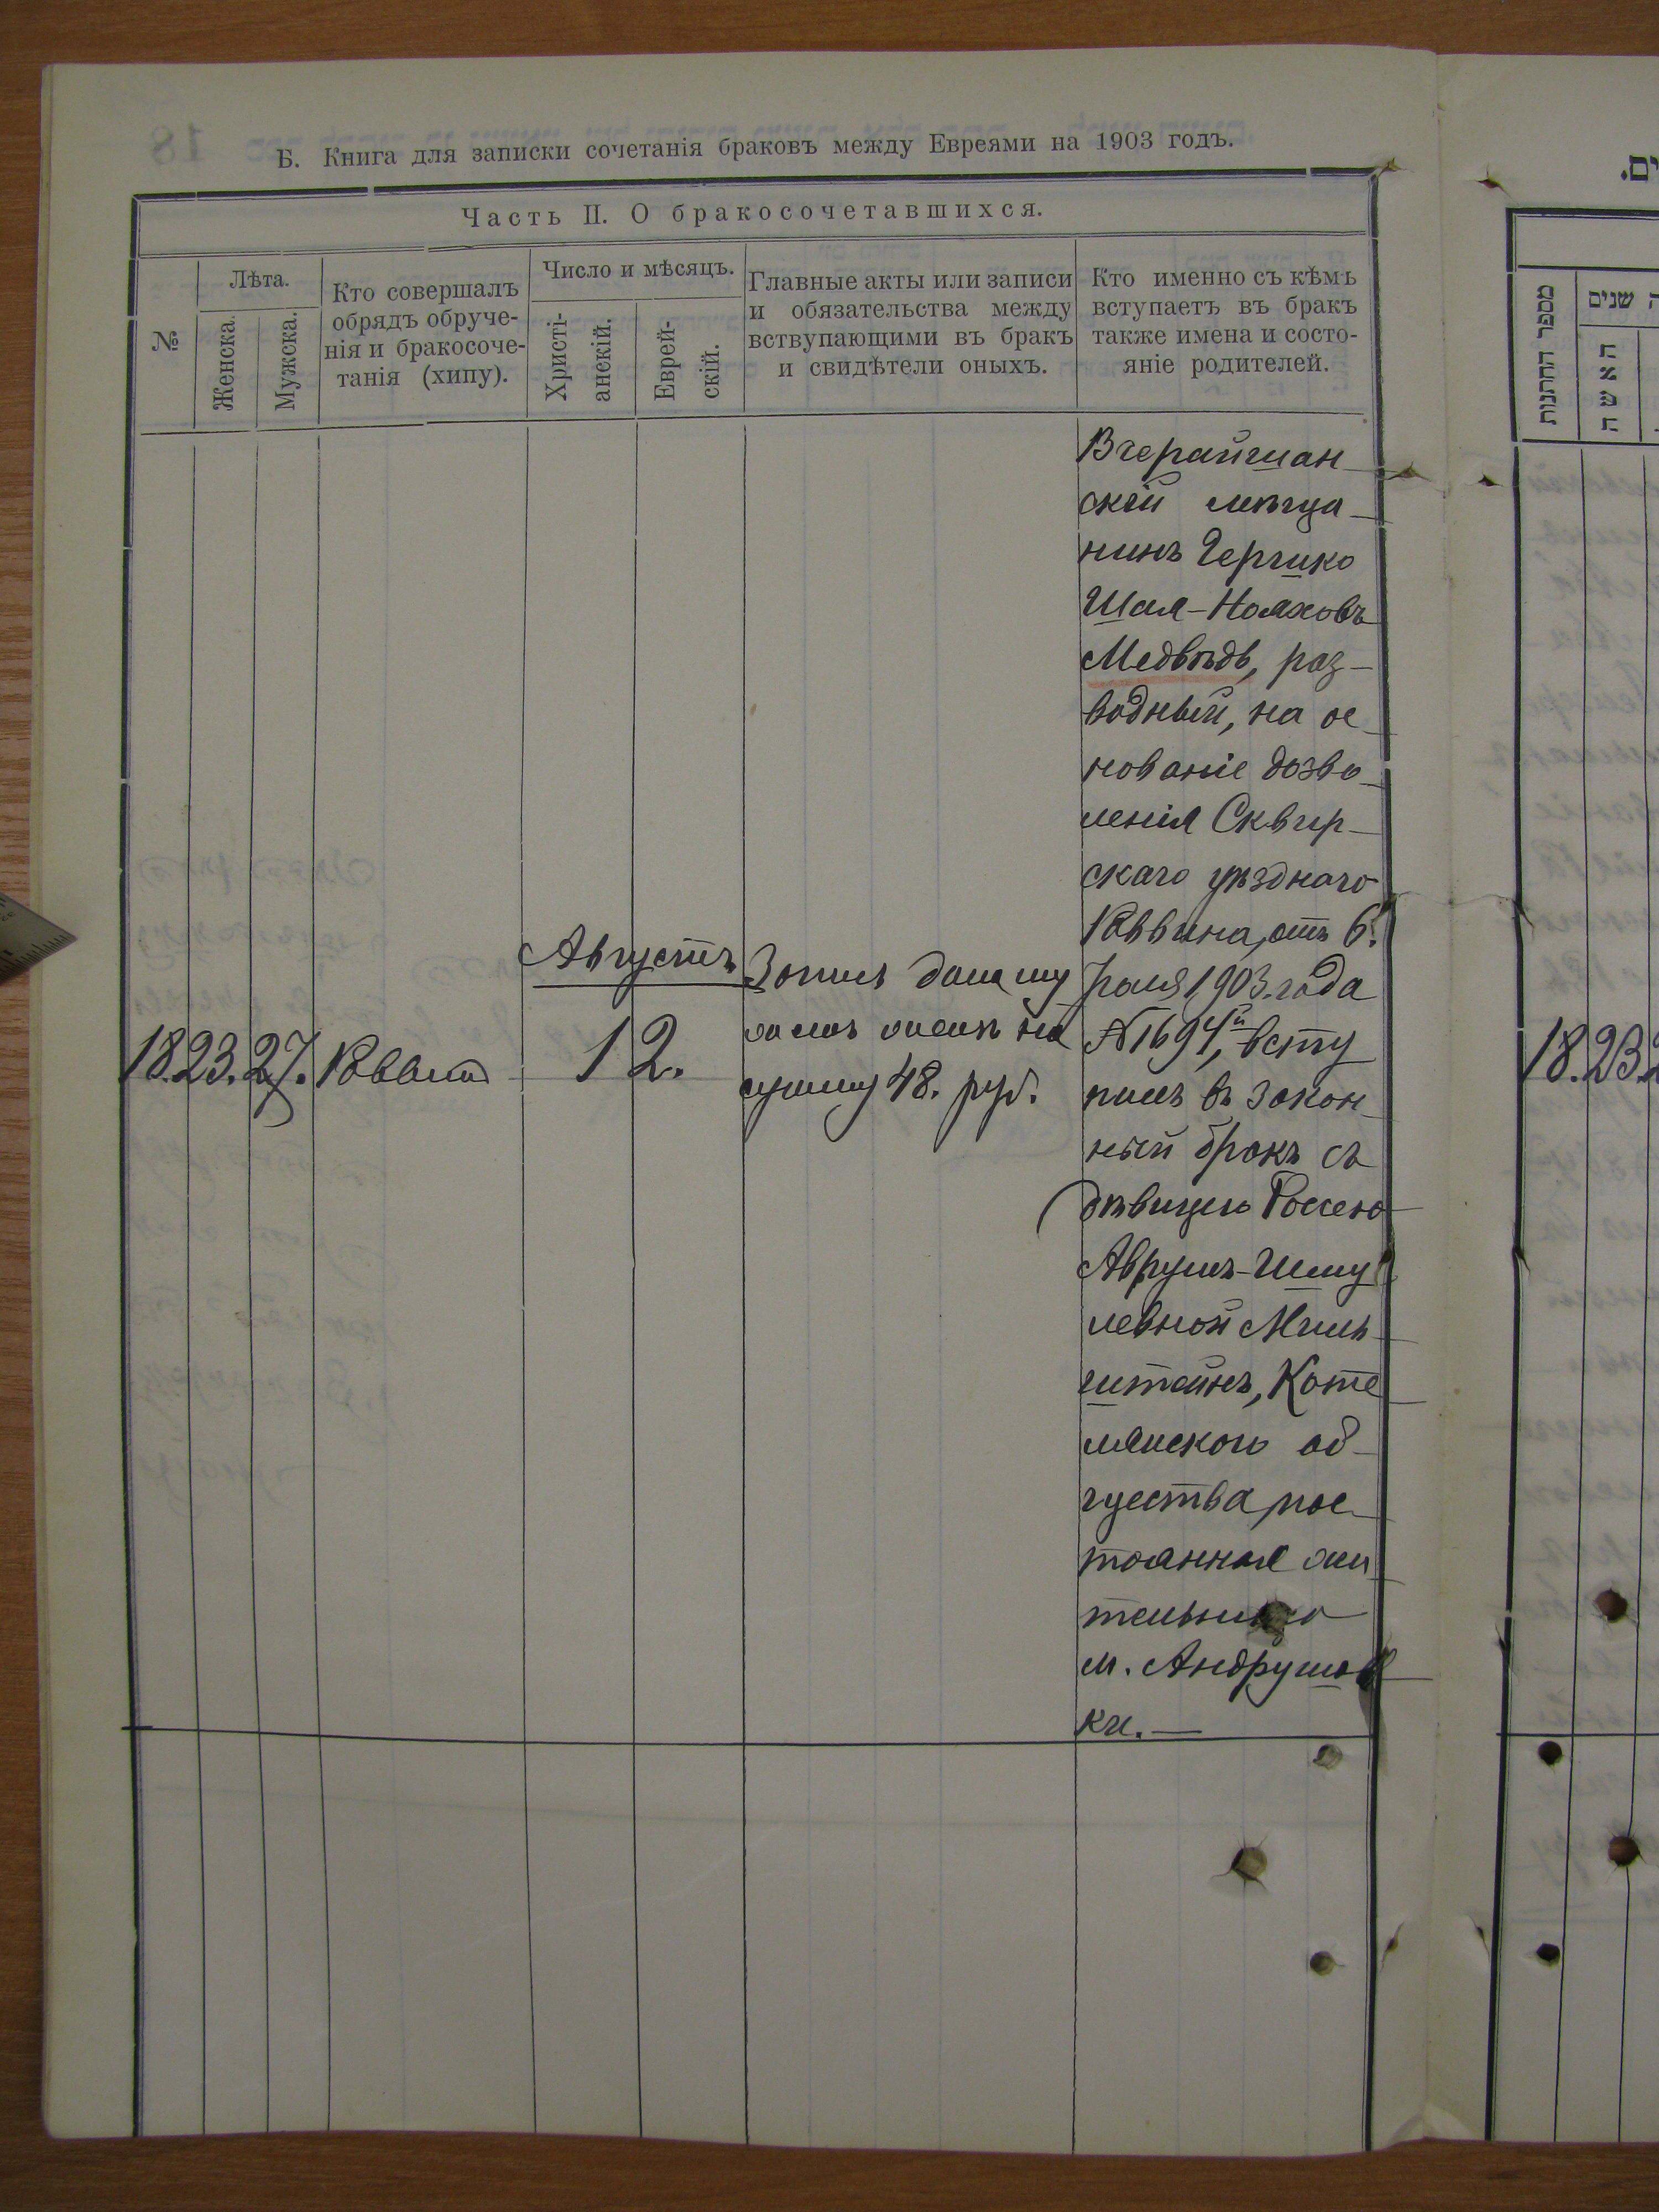 Б. Книга для записки сочетанія браковъ между Евреями на 1903 годъ.
Часть II. О бракосочетавшихся.
№
Лѣта.
Женска.
Мужска.
Кто совершалъ
обрядъ обруче-
нія и бракосоче-
танія (хипу).
Число и мѣсяцъ.
Христі-
анскій.
Еврей-
скій.
Главные акты или записи
и обязательства между
вствупающими въ бракъ
и свидѣтели оныхъ.
Кто именно съ кѣмъ
вступаетъ въ бракъ
также имена и состо-
яніе родителей.
18. 23. 27. Раввинъ
Августъ
12.
Запись дана му
жемъ женѣ на
сумму 48. руб.
Вчерайшан-
скій мѣща-
нинъ Гершко
Шая-Нояховъ
Медвѣдь, раз-
водный, на ос-
нованіе дозво-
ленія Сквир-
скаго уѣзднаго
Раввина, отъ 6.
1903. года
№ 1694й, всту
пилъ въ закон-
ный бракъ съ
дѣвицею Россею
Аврумъ-Шму
левной Миль-
штейнъ, Коте
лянского об-
щества, пос-
тоянная жи
тельница
м. Андрушов
ки. —
מספר החתונות
האשה
שנים
ים.
18. 23.